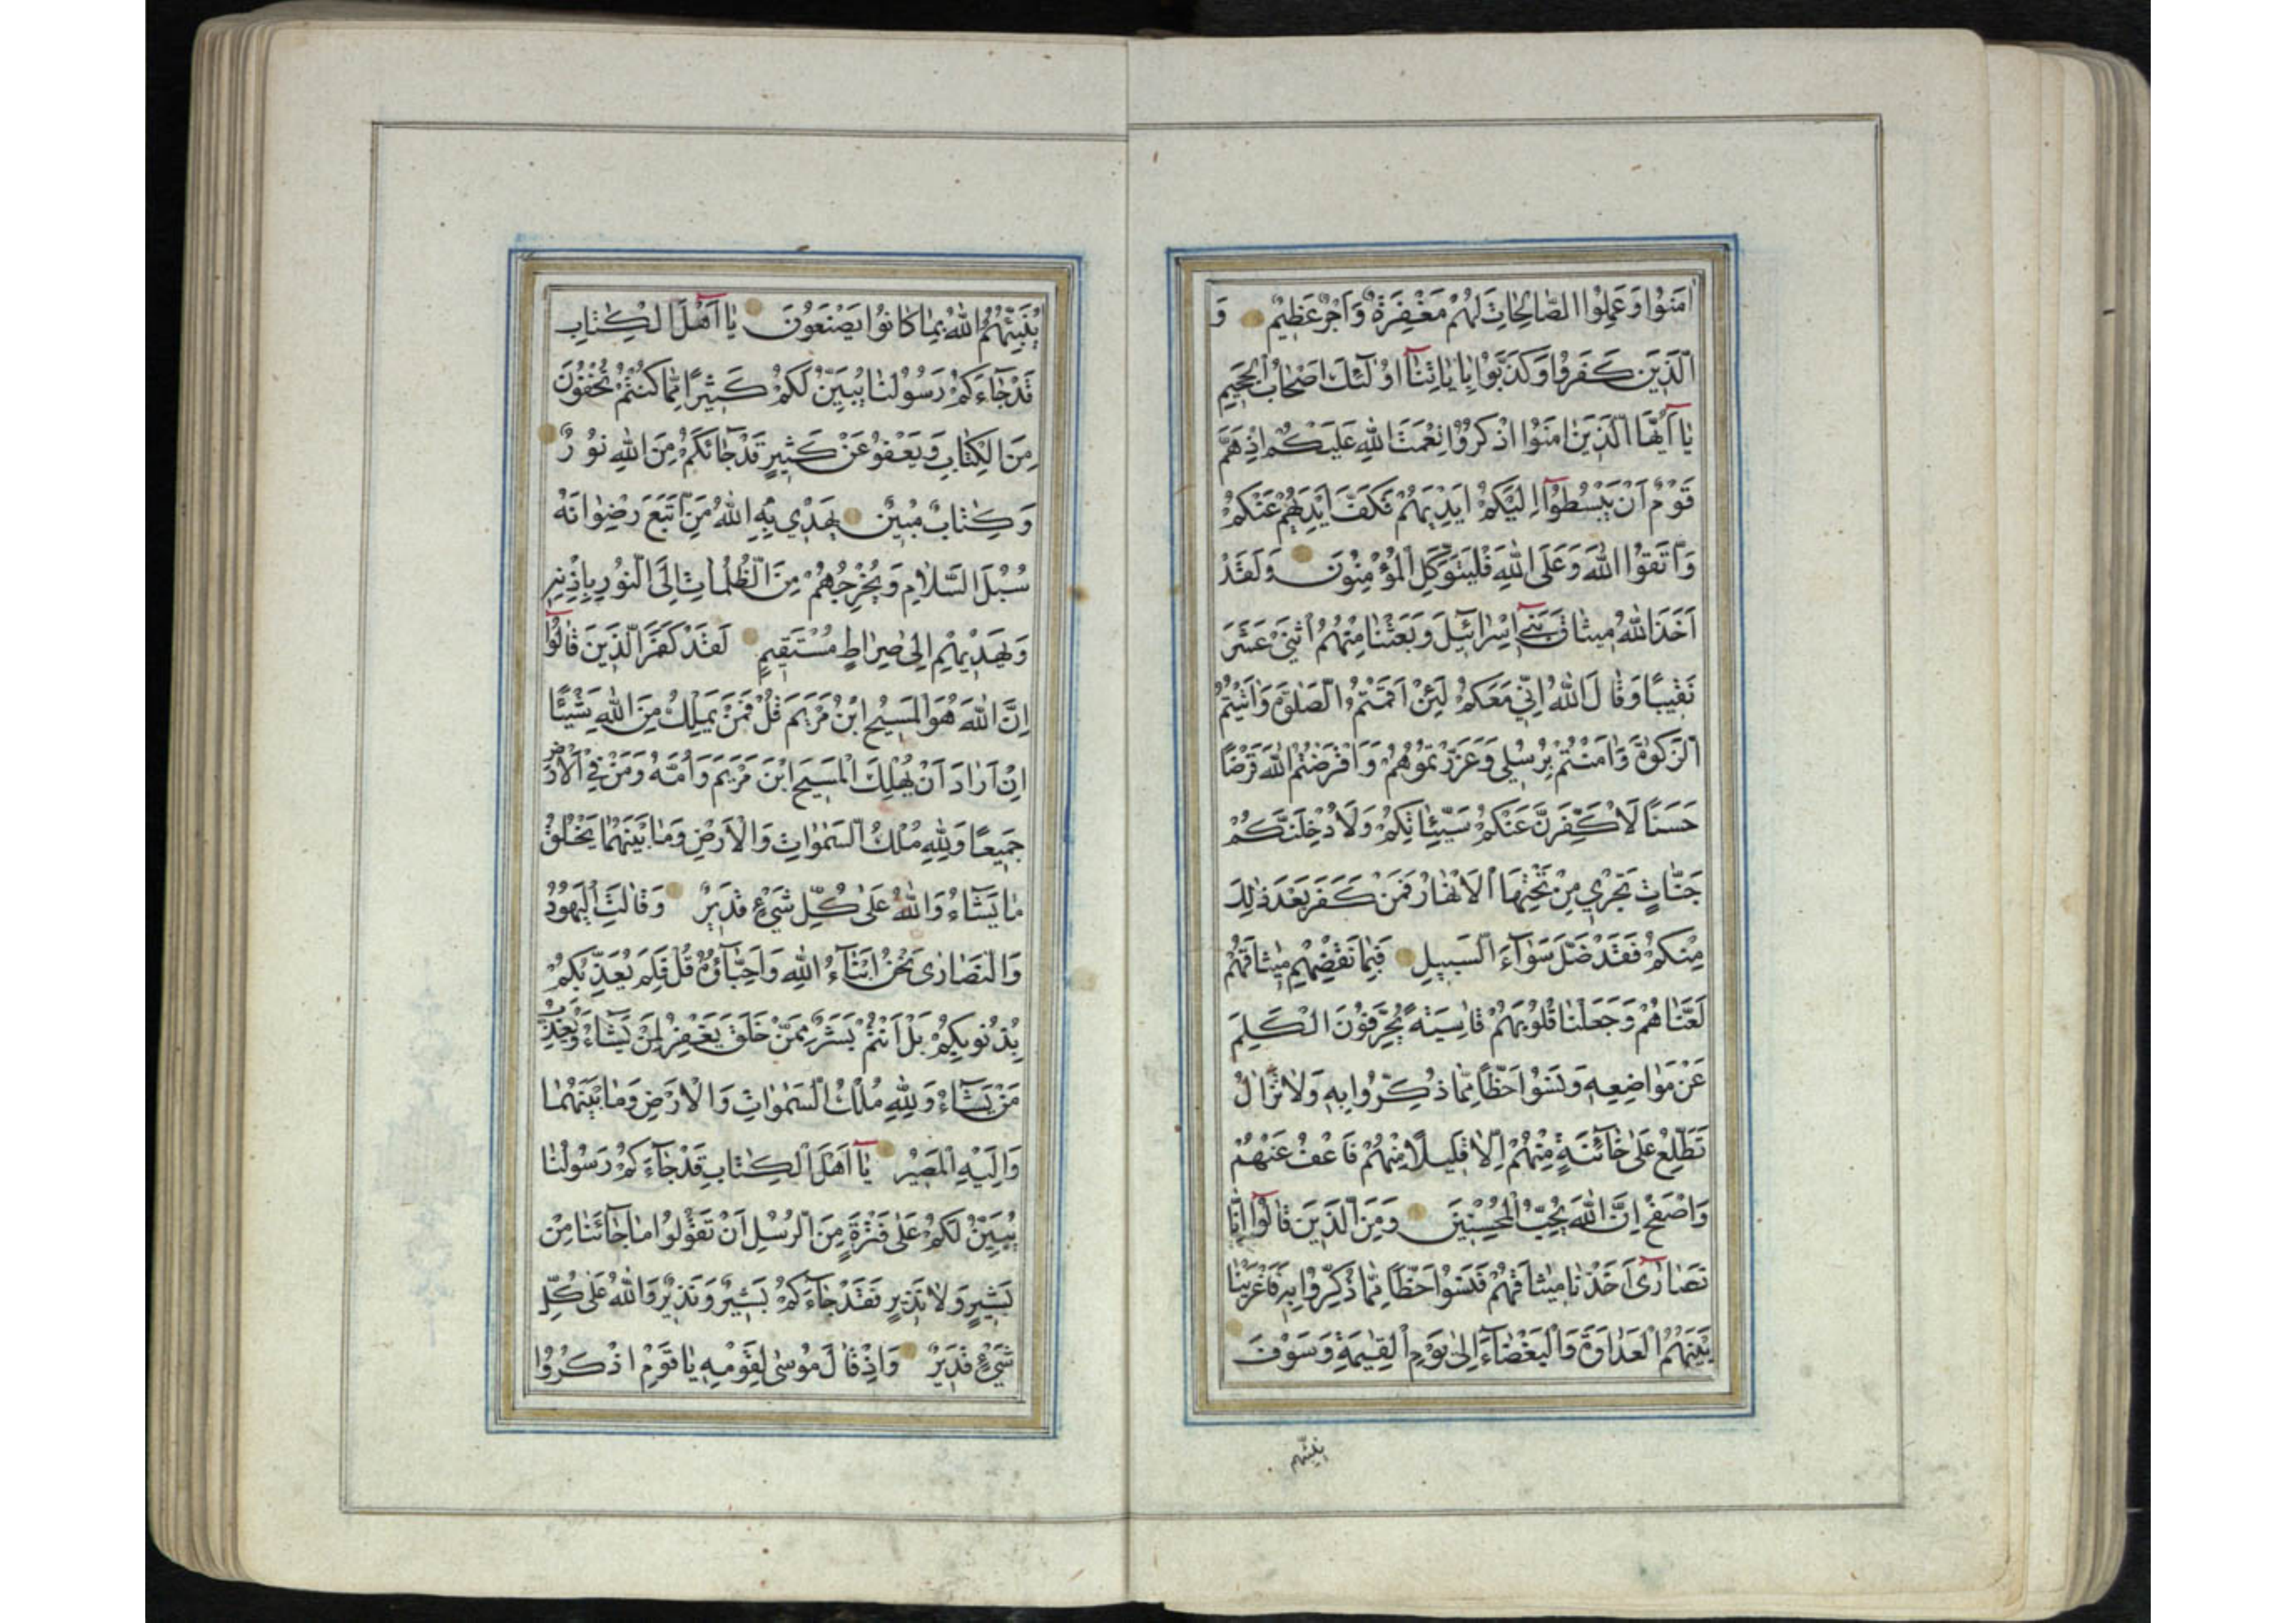 اٰمَنُوا وَعَمِلُوا الصَّالِحَاتِ لَهُمْ مَغْفِرَةٌ وَاَجْرٌ عَظِيْمٌ وَ
الَّذِيْنَ كَفَرُوا وَكَذَّبُوا بِاٰيَاتِنَا اُولٰئِكَ اَصْحَابُ الْجَحِيْمِ
يَا اَيُّهَا الَّذِيْنَ اٰمَنُوا اذْكُرُوا نِعْمَتَ اللهِ عَلَيْكُمْ اِذْ هَمَّ
قَوْمٌ اَنْ يَبْسُطُوا اِلَيْكُمْ اَيْدِيَهُمْ فَكَفَّ اَيْدِيَهُمْ عَنْكُمْ
وَاتَّقُوا اللهَ وَعَلَى اللهِ فَلْيَتَوَكَّلِ الْمُؤْمِنُوْنَ وَلَقَدْ
اَخَذَ اللهُ مِيْثَاقَ بَنِيْ اِسْرَائِيْلَ وَبَعَثْنَا مِنْهُمُ اثْنَيْ عَشَرَ
نَقِيْبًا وَقَالَ اللهُ اِنِّيْ مَعَكُمْ لَئِنْ اَقَمْتُمُ الصَّلٰوةَ وَاٰتَيْتُمُ
الزَّكٰوةَ وَاٰمَنْتُمْ بِرُسُلِيْ وَعَزَّرْتُمُوْهُمْ وَاَقْرَضْتُمُ اللهَ قَرْضًا
حَسَنًا لَاُكَفِّرَنَّ عَنْكُمْ سَيِّئَاتِكُمْ وَلَاُدْخِلَنَّكُمْ
جَنَّاتٍ تَجْرِيْ مِنْ تَحْتِهَا الْاَنْهَارُ فَمَنْ كَفَرَ بَعْدَ ذٰلِكَ
مِنْكُمْ فَقَدْ ضَلَّ سَوَآءَ السَّبِيْلِ فَبِمَا نَقْضِهِمْ مِيْثَاقَهُمْ
لَعَنَّاهُمْ وَجَعَلْنَا قُلُوْبَهُمْ قَاسِيَةً يُحَرِّفُوْنَ الْكَلِمَ
عَنْ مَوَاضِعِهِ وَنَسُوا حَظًّا مِمَّا ذُكِّرُوا بِهِ وَلَا تَزَالُ
تَطَّلِعُ عَلٰى خَآئِنَةٍ مِنْهُمْ اِلَّا قَلِيْلًا مِنْهُمْ فَاعْفُ عَنْهُمْ
وَاصْفَحْ اِنَّ اللهَ يُحِبُّ الْمُحْسِنِيْنَ وَمِنَ الَّذِيْنَ قَالُوا اِنَّا
نَصَارٰى اَخَذْنَا مِيْثَاقَهُمْ فَنَسُوا حَظًّا مِمَّا ذُكِّرُوا بِهِ فَاَغْرَيْنَا
بَيْنَهُمُ الْعَدَاوَةَ وَالْبَغْضَآءَ اِلٰى يَوْمِ الْقِيٰمَةِ وَسَوْفَ
ينبّئهم
يُنَبِّئُهُمُ اللهُ بِمَا كَانُوا يَصْنَعُوْنَ يَا اَهْلَ الْكِتَابِ
قَدْ جَآءَكُمْ رَسُوْلُنَا يُبَيِّنُ لَكُمْ كَثِيْرًا مِمَّا كُنْتُمْ تُخْفُوْنَ
مِنَ الْكِتَابِ وَيَعْفُو عَنْ كَثِيْرٍ قَدْ جَائَكُمْ مِنَ اللهِ نُوْرٌ
وَكِتَابٌ مُبِيْنٌ يَهْدِيْ بِهِ اللهُ مَنِ اتَّبَعَ رِضْوَانَهُ
سُبُلَ السَّلَامِ وَيُخْرِجُهُمْ مِنَ الظُّلُمَاتِ اِلَى النُّوْرِ بِاِذْنِهِ
وَيَهْدِيْهِمْ اِلٰى صِرَاطٍ مُسْتَقِيْمٍ لَقَدْ كَفَرَ الَّذِيْنَ قَالُوا
اِنَّ اللهَ هُوَ الْمَسِيْحُ ابْنُ مَرْيَمَ قُلْ فَمَنْ يَمْلِكُ مِنَ اللهِ شَيْئًا
اِنْ اَرَادَ اَنْ يُهْلِكَ الْمَسِيْحَ ابْنَ مَرْيَمَ وَاُمَّهُ وَمَنْ فِي الْاَرْضِ
جَمِيْعًا وَلِلّٰهِ مُلْكُ السَّمٰوَاتِ وَالْاَرْضِ وَمَا بَيْنَهُمَا يَخْلُقُ
مَا يَشَآءُ وَاللهُ عَلٰى كُلِّ شَيْءٍ قَدِيْرٌ وَقَالَتِ الْيَهُوْدُ
وَالنَّصَارٰى نَحْنُ اَبْنَآءُ اللهِ وَاَحِبَّآؤُهُ قُلْ فَلِمَ يُعَذِّبُكُمْ
بِذُنُوْبِكُمْ بَلْ اَنْتُمْ بَشَرٌ مِمَّنْ خَلَقَ يَغْفِرُ لِمَنْ يَشَآءُ وَيُعَذِّبُ
مَنْ يَشَآءُ وَلِلّٰهِ مُلْكُ السَّمٰوَاتِ وَالْاَرْضِ وَمَا بَيْنَهُمَا
وَاِلَيْهِ الْمَصِيْرُ يَا اَهْلَ الْكِتَابِ قَدْ جَآءَكُمْ رَسُوْلُنَا
يُبَيِّنُ لَكُمْ عَلٰى فَتْرَةٍ مِنَ الرُّسُلِ اَنْ تَقُوْلُوا مَا جَآئَنَا مِنْ
بَشِيْرٍ وَلَا نَذِيْرٍ فَقَدْ جَآءَكُمْ بَشِيْرٌ وَنَذِيْرٌ وَاللهُ عَلٰى كُلِّ
شَيْءٍ قَدِيْرٌ وَاِذْ قَالَ مُوْسٰى لِقَوْمِهِ يَا قَوْمِ اذْكُرُوا